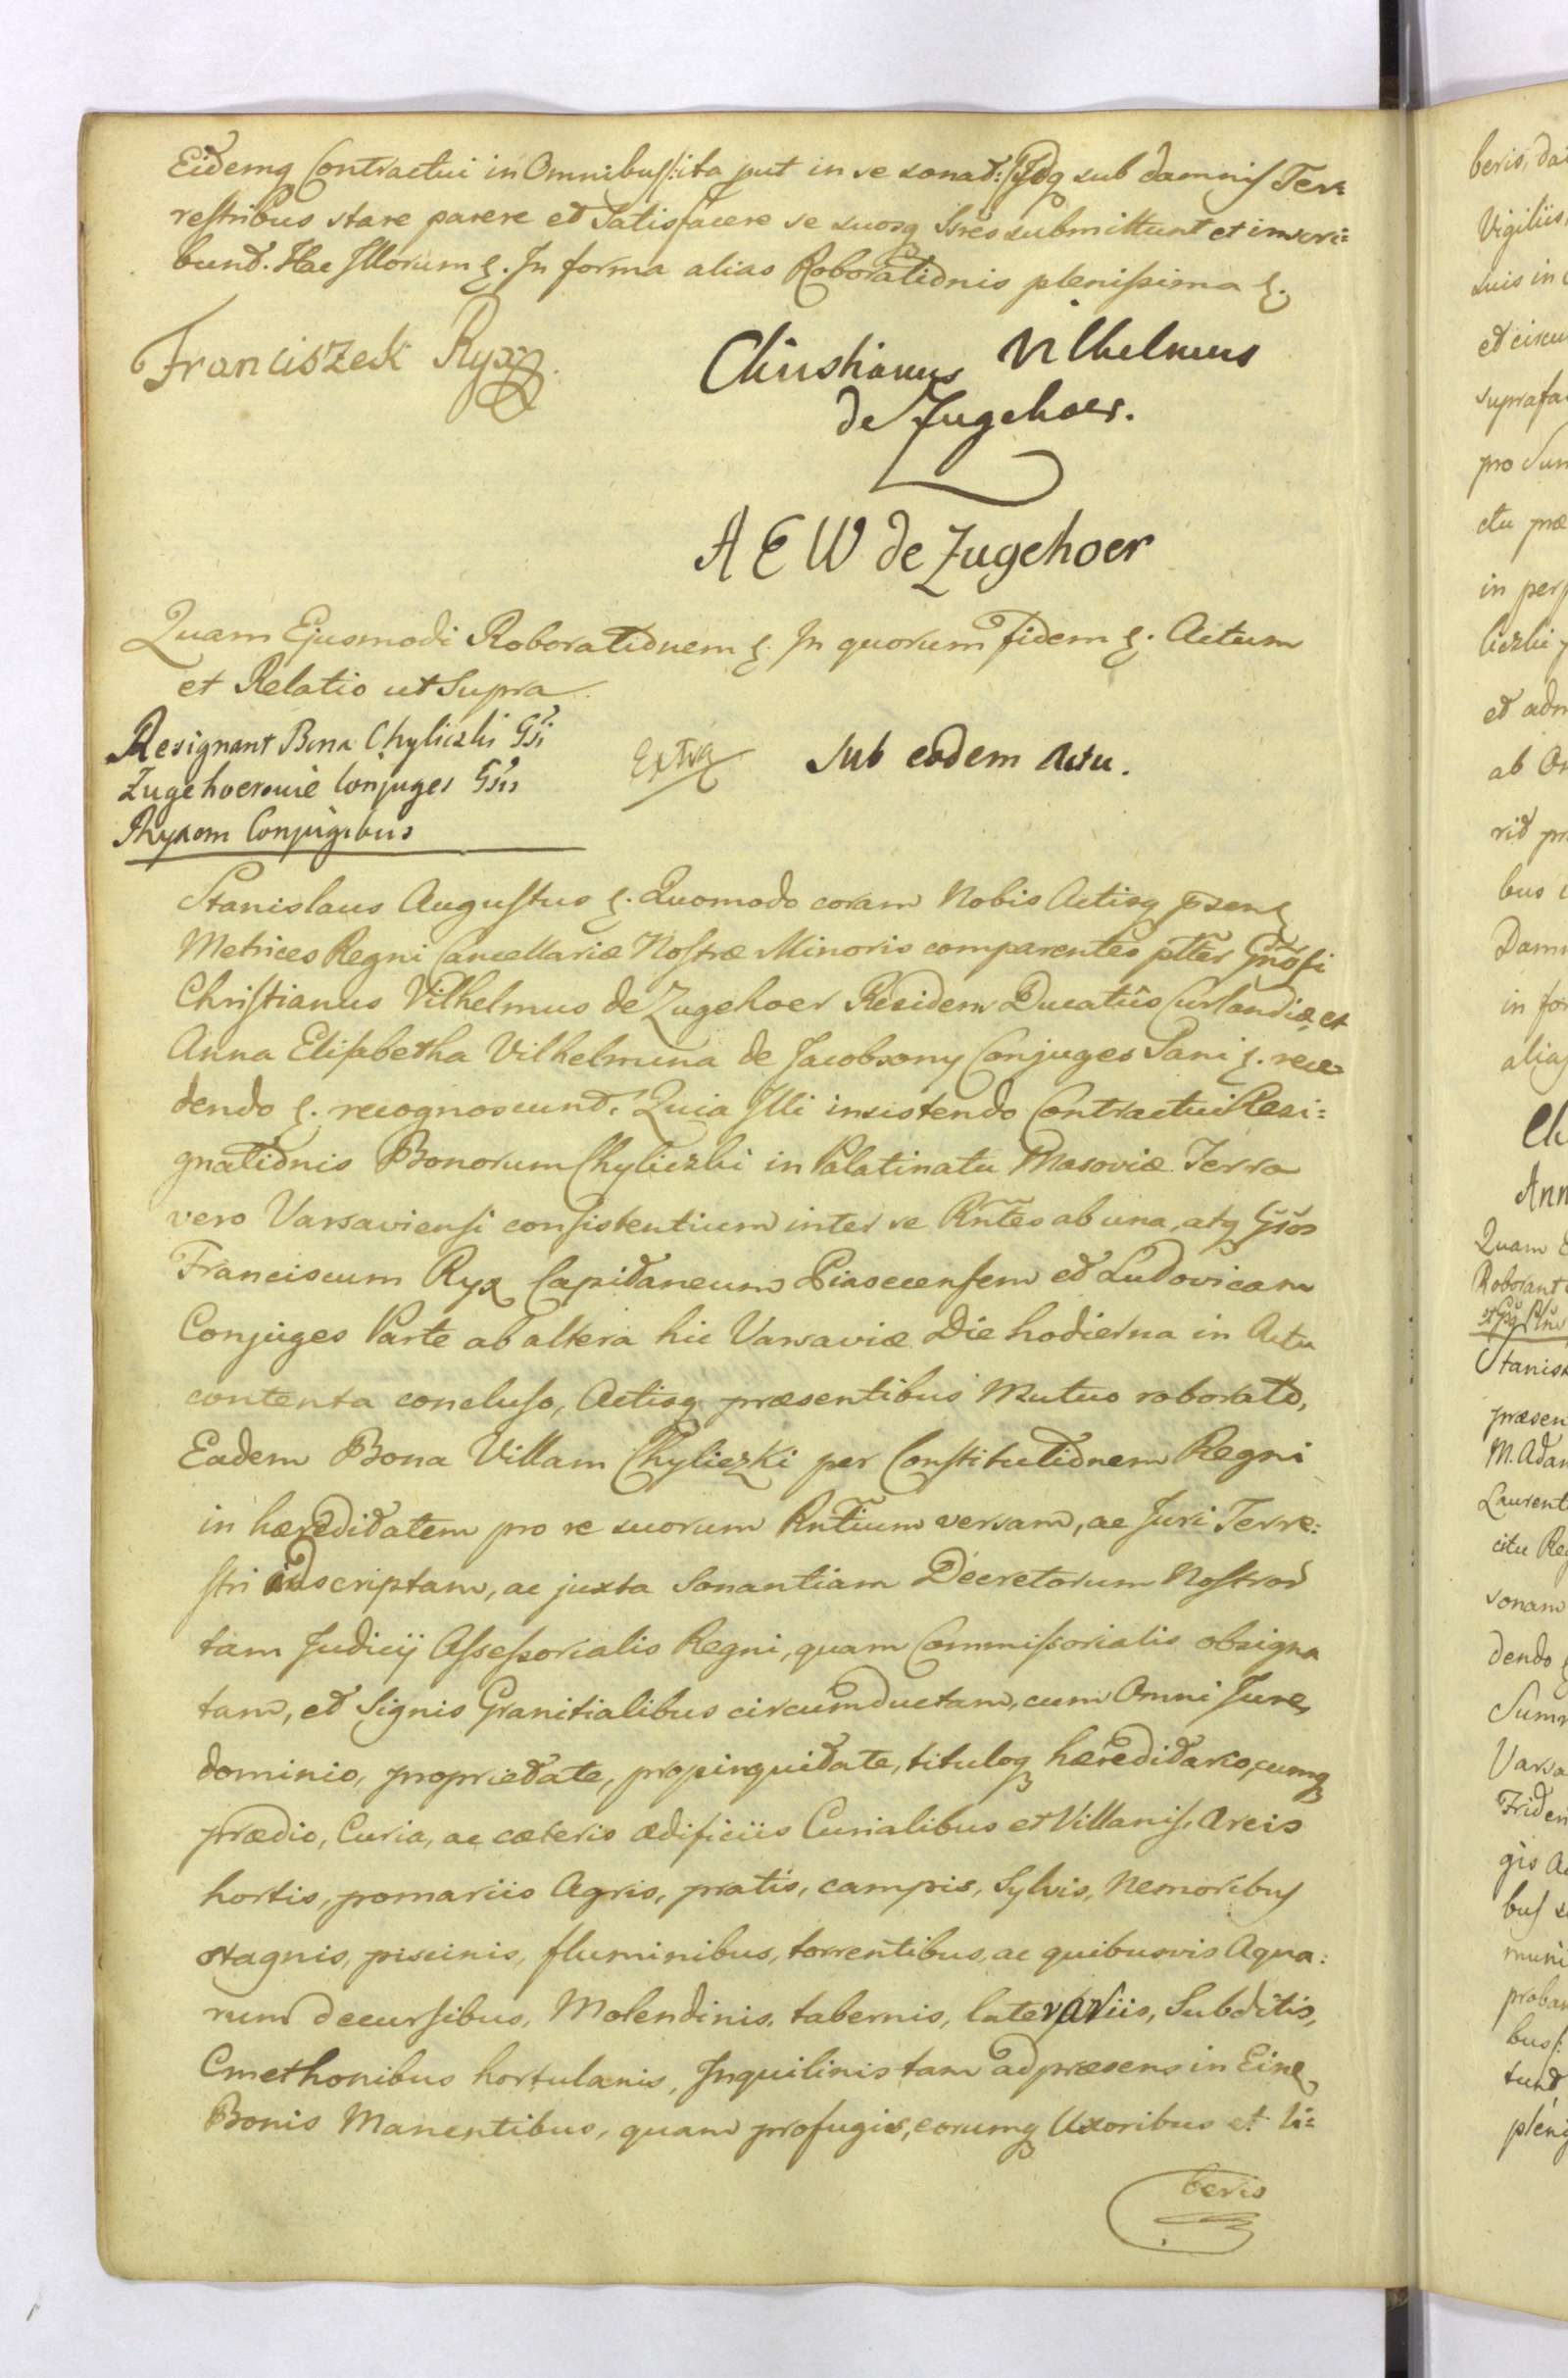 Eidemq Contractui in Omnibus /:ita put in se sonat:/ Idq sub damnis Ter=
restribus stare parere et Satisfacere se suosq Ssres submittunt et inscri=
bunt. Hac Illorum &. In forma alias Roborationis plenissima &.
Franciszek Ryx
Christianus Vilhelmus
de Zugehoer.
A E W de Zugehoer
Quam Ejusmodi Roborationem &. In quorum fidem &. Actum
et Relatio ut Supra
Resignant Bona Chyliczki Gsi
Zugehoerowie Conjuges Gsis
Ryxom Conjugibus
Extra
Sub eodem Actu.
Stanislaus Augustus &. Quomodo coram Nobis Actisq
Metrices Regni Cancellariæ Nostræ Minoris comparentes ptter Gnosi
Christianus Vilhelmus de Zugehoer Residens Ducatûs Curlandiæ, et
Anna Elisabetha Vilhelmina de Jacobsony Conjuges Sani &. rece=
dendo &. recognoscunt. Quia Illi insistendo Contractui Resi=
gnationis Bonorum Chyliczki in Palatinatu Masoviæ Terra
vero Varsaviensi consistentium inter se Rntes ab una, atq Gsos
Franciscum Ryx Capitaneum Piasecensem et Ludovicam
Conjuges Parte ab altera hic Varsaviæ Die hodierna in Actu
contenta concluso, Actisq præsentibus Mutuo roborato,
Eadem Bona Villam Chyliczki per Constitutionem Regni
in hæreditatem pro se suorum Rntium versam, ac Juri Terre=
stri adscriptam, ac juxta Sonantiam Decretorum Nostror
tam Judicij Assessorialis Regni, quam Commissorialis obsigna
tam, et Signis Granitialibus circumductam, cum Omni Jure,
dominio, proprietate, propinquitate, tituloq hæreditario, cumq
prædio, Curia, ac cæteris ædificiis Curialibus et Villanis, Areis
hortis, pomariis Agris, pratis, campis, Sylvis, Nemoribus
stagnis, piscinis, fluminibus, torrentibus, ac quibusvis Aqua=
rum decursibus, Molendinis, tabernis, laterariis, Subditis,
Cmethonibus hortulanis, Inquilinis tam ad præsens in
Bonis Manentibus, quam profugis, eorumq Uxoribus et li=
beris